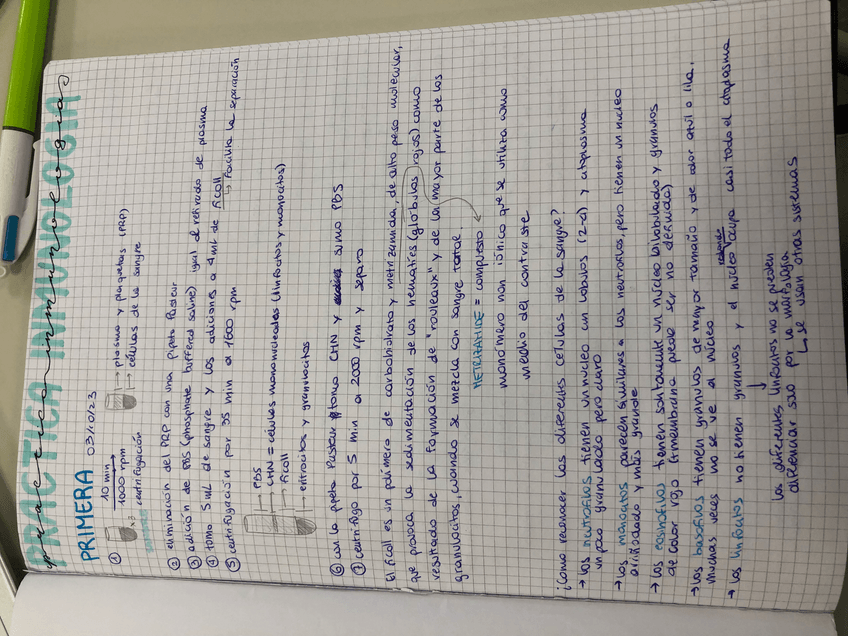 PRACTICA INMUNOLOGIA
practica inmunologia
PRIMERA 03/10/23
① 10 min
1000 rpm
x2
centrifugación
→ plasma y plaquetas (PRP)
→ células de la sangre
② eliminación del PRP con una pipeta Pasteur
③ adición de PBS (phosphate buffered saline) igual al retirado de plasma
④ tomo 5 mL de sangre y los adiciono a 4 mL de ficoll
⑤ centrifugación por 35 min a 1600 rpm
↳ facilita la separación
→ PBS
→ CMN = células mononucleadas (linfocitos y monocitos)
→ ficoll
→ eritrocitos y granulocitos
⑥ con la pipeta Pasteur tomo CMN y sumo PBS
⑦ centrifugo por 5 min a 2000 rpm y separo
El ficoll es un polímero de carbohidrato y metrizamida, de alto peso molecular,
que provoca la sedimentación de los hematíes (glóbulos rojos) como
resultado de la formación de "rouleaux" y de la mayor parte de los
granulocitos, cuando se mezcla con sangre total.
METRIZAMIDE = compuesto
monómero non iónico que se utiliza como
medio del contraste
¿Como reconocer las diferentes células de la sangre?
→ Los neutrofilos tienen un nucleo en lobulos (2-4) y citoplasma
un poco granulado pero claro
→ Los monocitos parecen similares a los neutrofilos, pero tienen un nucleo
arriñodado y más grande
→ Los eosinofilos tienen solitamente un nucleo bilobulado y granulos
de color rojo (membrana puede ser no definida)
→ Los basofilos tienen granulos de mayor tamaño y de color azul o lila,
muchas veces no se ve el nucleo
→ Los linfocitos no tienen granulos y el nucleo redondo ocupa casi todo el citoplasma
↓
los diferentes linfocitos no se pueden
diferenciar solo por la morfología
↳ se usan otras sistemas